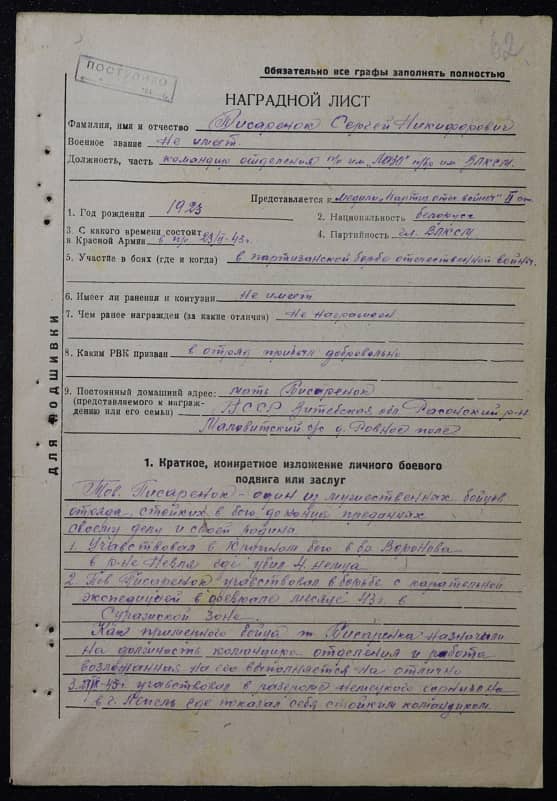 62
Обязательно все графы заполнять полностью
ПОСТУПИЛО
НАГРАДНОЙ ЛИСТ
Фамилия, имя и отчество Писаренок Сергей Никифорович
Военное звание Не имеет
Должность, часть командир отделения п/о им "ЛАЗО" п/бр им ВЛКСМ
Представляется к медали "Партиз. отеч. войны" II ст.
1. Год рождения 1923
2. Национальность белорус
3. С какого времени состоит
в Красной Армии в п/о 43 г.
4. Партийность чл. ВЛКСМ
5. Участие в боях (где и когда) в партизанской борьбе отечественной войны
6. Имеет ли ранения и контузии не имеет
7. Чем ранее награжден (за какие отличия) Не награжден
8. Каким РВК призван в отряд прибыл добровольно
9. Постоянный домашний адрес: мать Писаренок
(представляемого к награж-
дению или его семьи) БССР Витебская обл. Расонский р-н
с/с д. Ровное поле
ДЛЯ ПОДШИВКИ
1. Краткое, конкретное изложение личного боевого
подвига или заслуг
Тов. Писаренок - один из мужественных бойцов
отряда, стойких в бою до конца преданных
своему делу и своей родине
1. Учавствовал в крупном бою в
в р-не Невля где убил 4 немца
2. Тов Писаренок учавствовал в борьбе с карательной
экспедицией в феврале месяце 43 г. в
Суражской зоне.
Как примерного бойца т. Писаренка назначили
на должность командира отделения и работа
возложенная на его выполняется на отлично
3. 43 г учавствовал в разгроме немецкого гарнизона
в г. Лепель где показал себя стойким командиром.